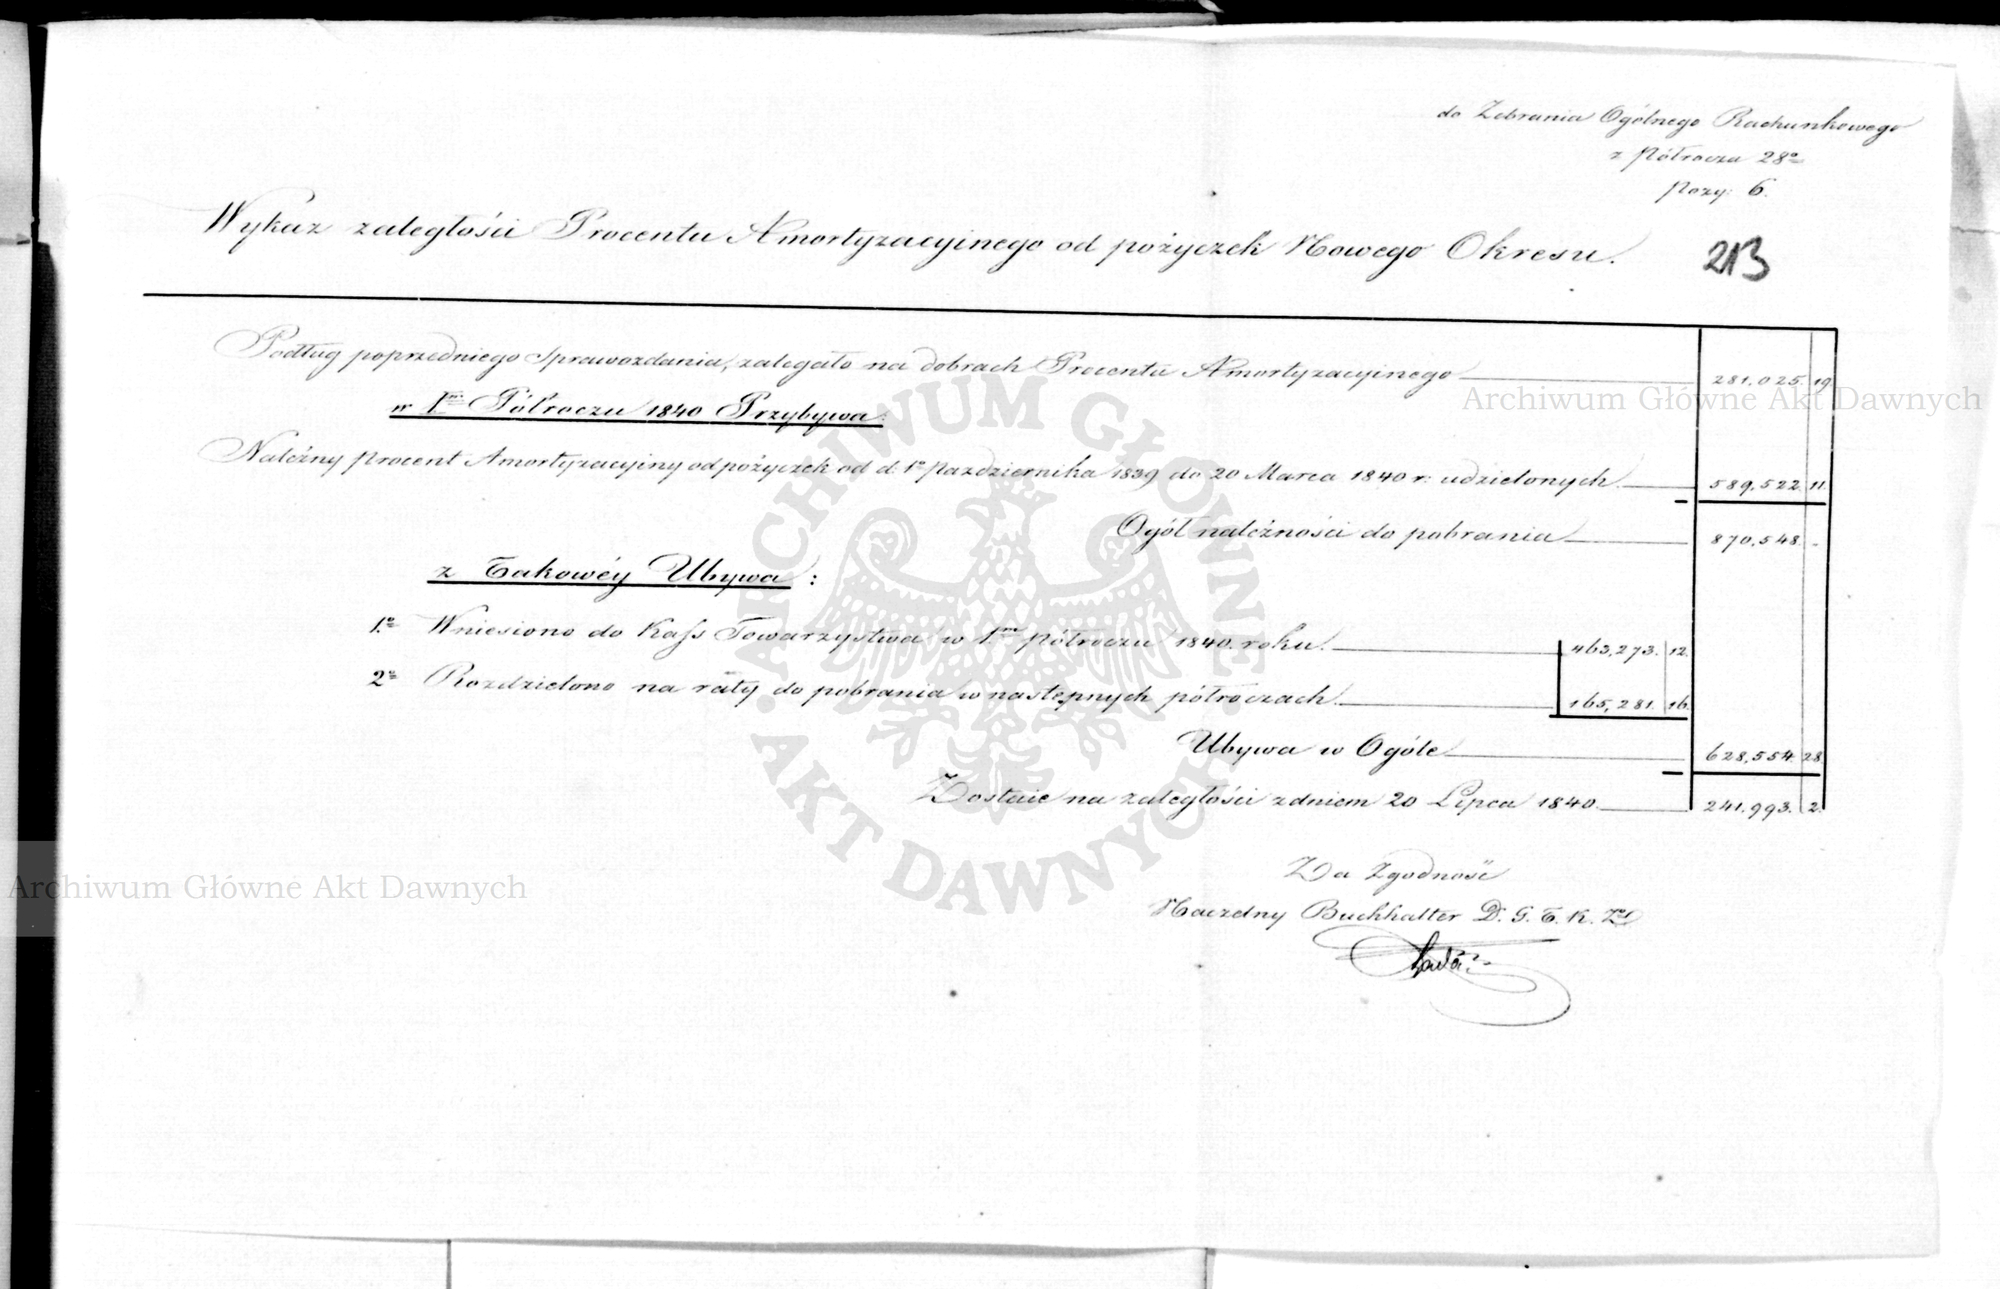 do Zebrania Ogólnego Rachunkowego
z Półrocza 28º
Pozy: 6.
Wykaz zaległości Procentu Amortyzacyinego od pożyczek Nowego Okresu.
213
Podług poprzedniego Sprawozdania, zalegało na dobrach Procentu Amortyzacyinego 281,025. 19
w Iм Półroczu 1840 Przybywa:
Należny procent Amortyzacyiny od pożyczek od d. 1º Października 1839 do 20 Marca 1840 r: udzielonych 589,522. 11.
Ogół należności do pobrania 870,548. -
z Takowéy Ubywa:
1º Wniesiono do Kass Towarzystwa w 1m półroczu 1840. roku. 463,273. 12.
2º Rozdzielono na raty do pobrania w następnych półroczach. 165,281. 16.
Ubywa w Ogóle 628,554. 28.
Zostaie na zaległości z dniem 20 Lipca 1840. 241,993. 2.
Za Zgodność
Naczelny Buchhalter D. G. T. K. Zo
Archiwum Główne Akt Dawnych
Archiwum Główne Akt Dawnych
ARCHIWUM GŁÓWNE
AKT DAWNYCH